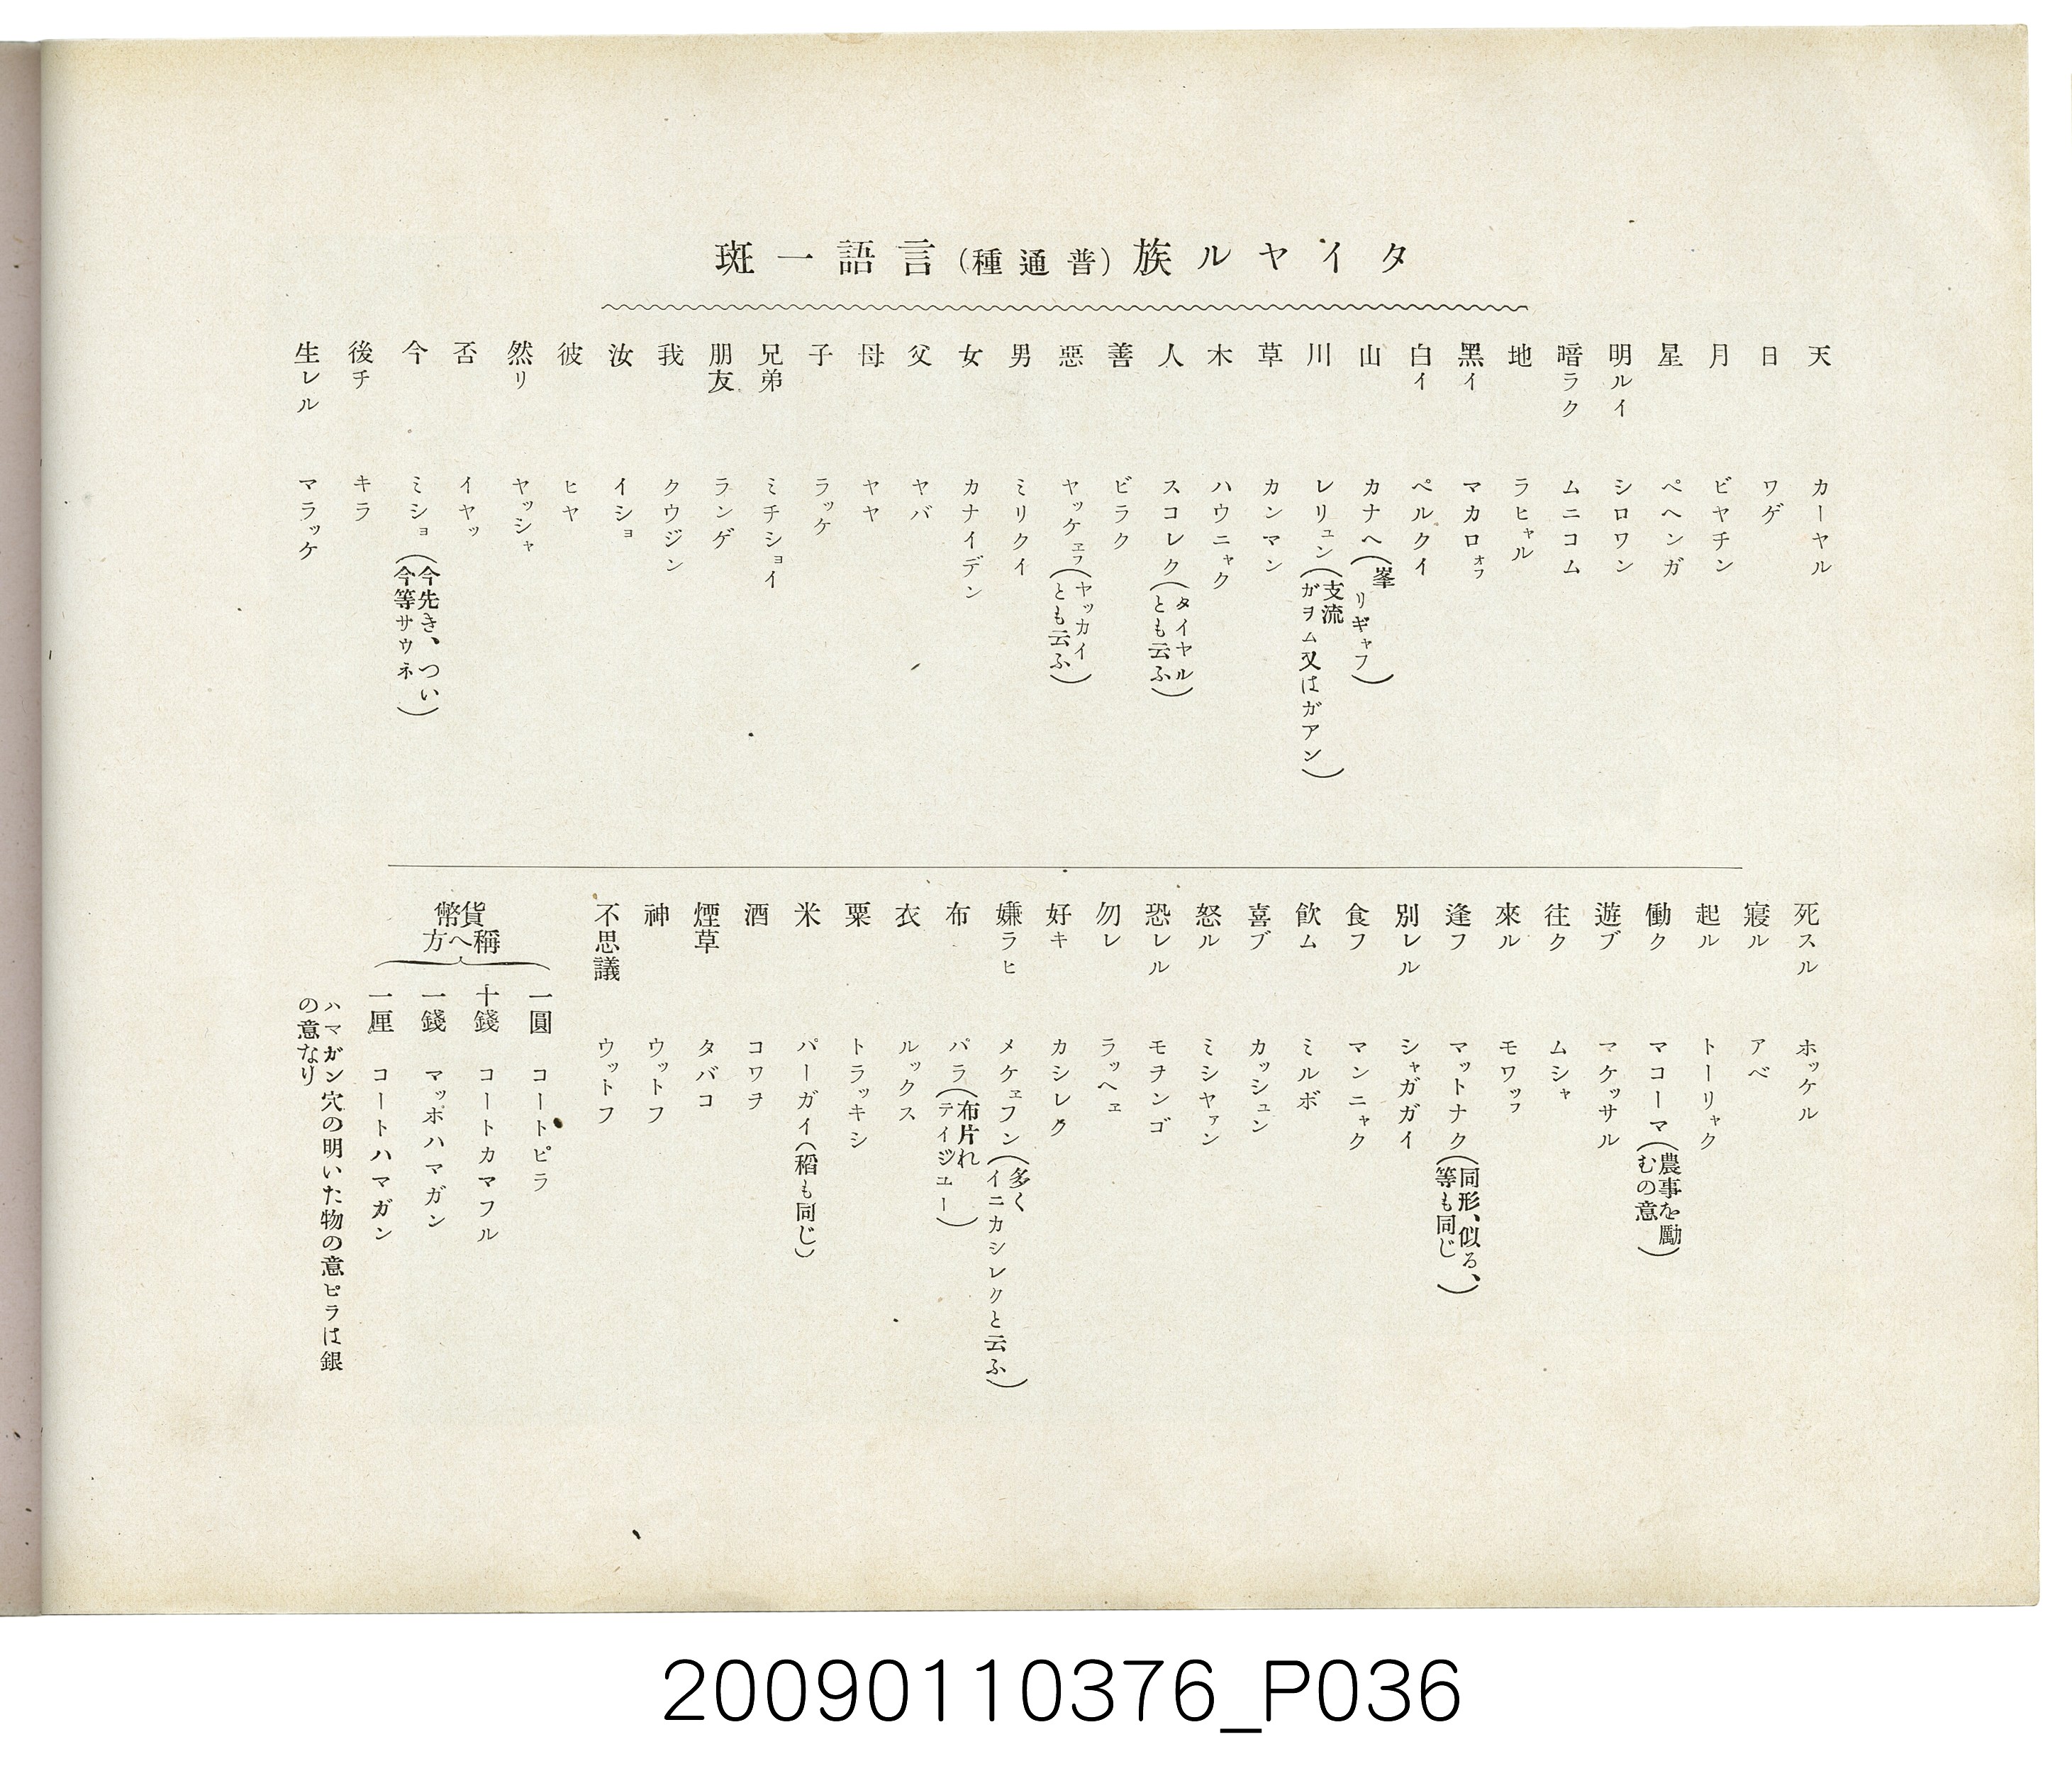 タイヤル族(普通種)言語一斑
天 カーヤル
日 ワゲ
月 ビヤチン
星 ペヘンガ
明ルイ シロワン
暗ラク ムニコム
地 ラヒャル
黑イ マカロォフ
白イ ペルクイ
山 カナヘ(峯 リギャフ)
川 レリュン(支流 ガヲム又はガアン)
草 カンマン
木 ハウニャク
人 スコレク(タイヤルとも云ふ)
善 ビラク
惡 ヤッケェフ(ヤッカイとも云ふ)
男 ミリクイ
女 カナイデン
父 ヤバ
母 ヤヤ
子 ラッケ
兄弟 ミチショイ
朋友 ランゲ
我 クウジン
汝 イショ
彼 ヒヤ
然リ ヤッシャ
否 イヤッ
今 ミショ(今先き、つい今等サウネ)
後チ キラ
生レル マラッケ
死スル ホッケル
寢ル アベ
起ル トーリャク
働ク マコーマ(農事を勵むの意)
遊ブ マケッサル
往ク ムシャ
來ル モワッフ
逢フ マットナク(同形、似る、等も同じ)
別レル シャガガイ
食フ マンニャク
飮ム ミルボ
喜ブ カッシュン
怒ル ミシヤァン
恐レル モヲンゴ
勿レ ラッヘェ
好キ カシレク
嫌ラヒ メケェフン(多くイニカシレクと云ふ)
布 パラ(布片れ テイジユー)
衣 ルックス
粟 トラッキシ
米 パーガイ(稻も同じ)
酒 コワヲ
煙草 タバコ
神 ウットフ
不思議 ウットフ
貨幣稱へ方
一圓 コートピラ
十錢 コートカマフル
一錢 マッポハマガン
一厘 コートハマガン
ハマガン穴の明いた物の意ピラは銀
の意なり
20090110376_P036